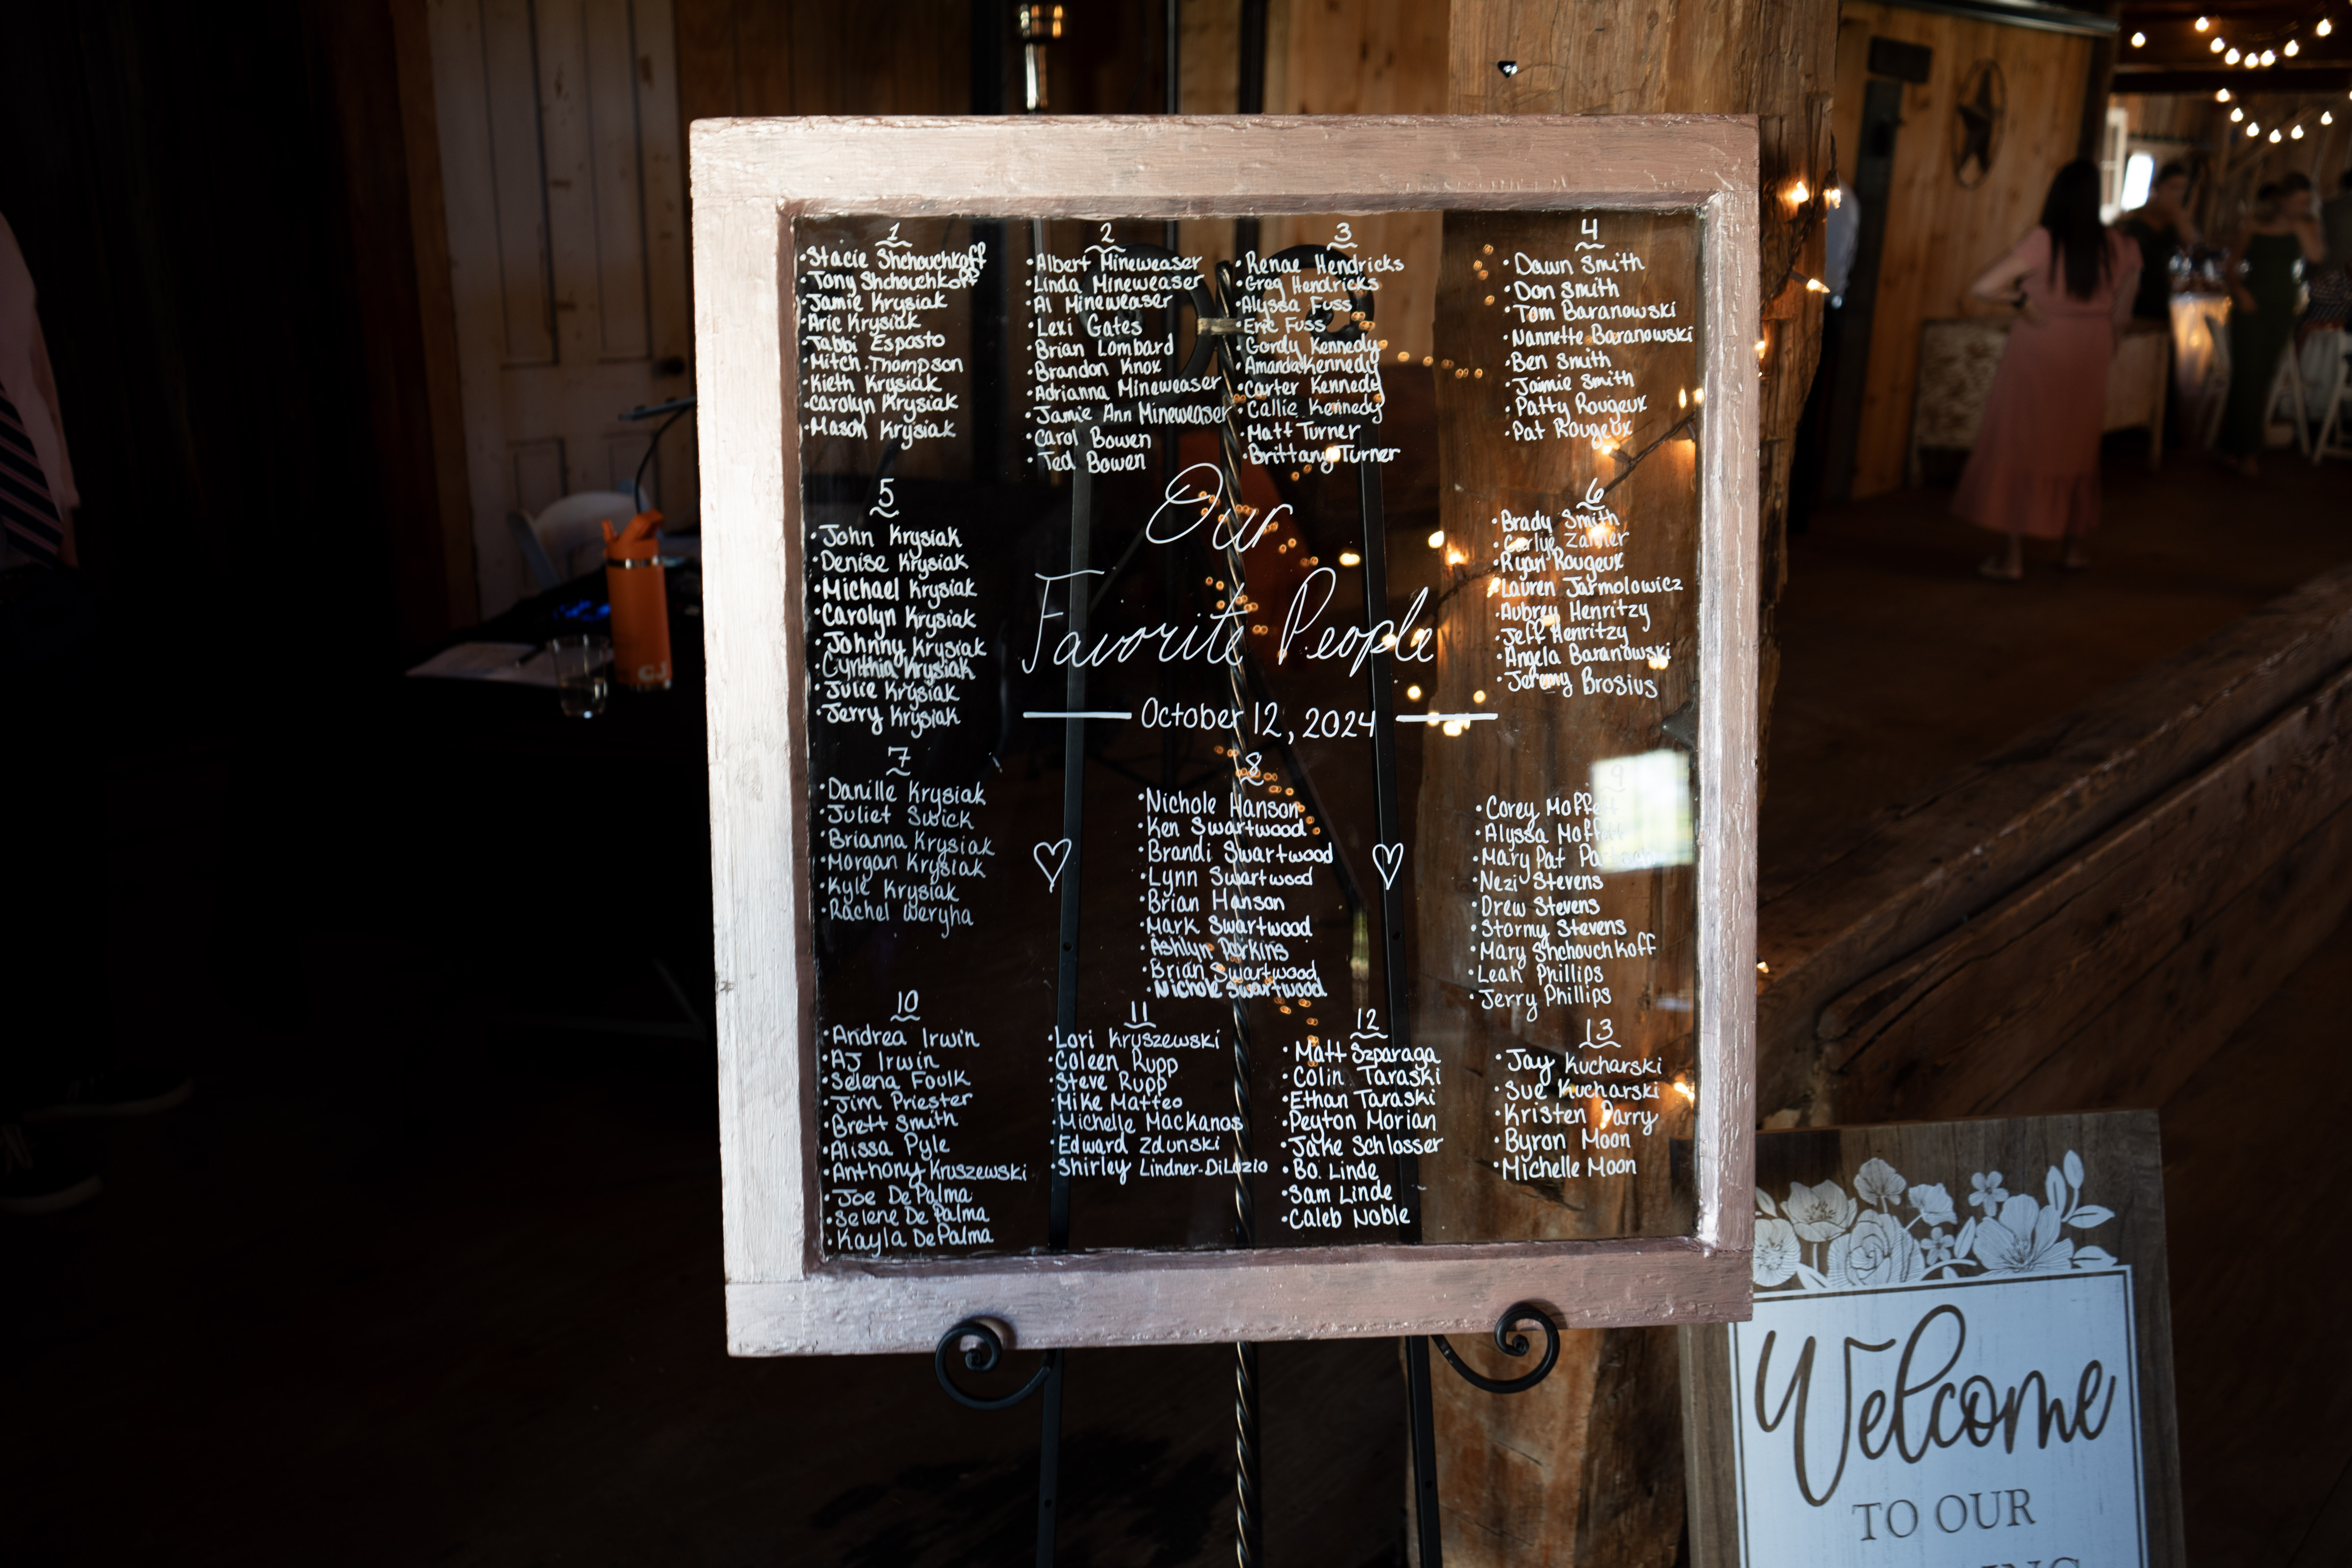 1
Stacie Shchouchkoff
Tony Shchouchkoff
Jamie Krysiak
Aric Krysiak
Tabbi Esposto
Mitch Thompson
Kieth Krysiak
Carolyn Krysiak
Mason Krysiak
2
Albert Mineweaser
Linda Mineweaser
Al Mineweaser
Lexi Gates
Brian Lombard
Brandon Knox
Adrianna Mineweaser
Jamie Ann Mineweaser
Carol Bowen
Ted Bowen
3
Renae Hendricks
Greg Hendricks
Alyssa Fuss
Eric Fuss
Gordy Kennedy
Amanda Kennedy
Carter Kennedy
Callie Kennedy
Matt Turner
Brittany Turner
4
Dawn Smith
Don Smith
Tom Baranowski
Nannette Baranowski
Ben Smith
Jaimie Smith
Patty Rougeux
Pat Rougeux
5
John Krysiak
Denise Krysiak
Michael Krysiak
Carolyn Krysiak
Johnny Krysiak
Cynthia Krysiak
Julie Krysiak
Jerry Krysiak
Our
Favorite People
October 12, 2024
6
Brady Smith
Carlye
Ryan Rougeux
Lauren Jarmolowicz
Aubrey Henritzy
Jeff Henritzy
Angela Baranowski
Jeremy Brosius
7
Danille Krysiak
Juliet Swick
Brianna Krysiak
Morgan Krysiak
Kyle Krysiak
Rachel Weryha
8
Nichole Hanson
Ken Swartwood
Brandi Swartwood
Lynn Swartwood
Brian Hanson
Mark Swartwood
Ashlyn Parkins
Brian Swartwood
Nichole Swartwood
9
Corey
Alyssa
Mary Pat
Nezi Stevens
Drew Stevens
Stormy Stevens
Mary Shchouchkoff
Leah Phillips
Jerry Phillips
10
Andrea Irwin
AJ Irwin
Selena Foulk
Jim Priester
Brett Smith
Alissa Pyle
Anthony Kruszewski
Joe DePalma
Selene DePalma
Kayla DePalma
11
Lori Kruszewski
Coleen Rupp
Steve Rupp
Mike Matteo
Michelle Mackanos
Edward Zdunski
Shirley Lindner-DiLozio
12
Matt Szparaga
Colin Taraski
Ethan Taraski
Peyton Morian
Jake Schlosser
Bo. Linde
Sam Linde
Caleb Noble
13
Jay Kucharski
Sue Kucharski
Kristen Parry
Byron Moon
Michelle Moon
Welcome
TO OUR